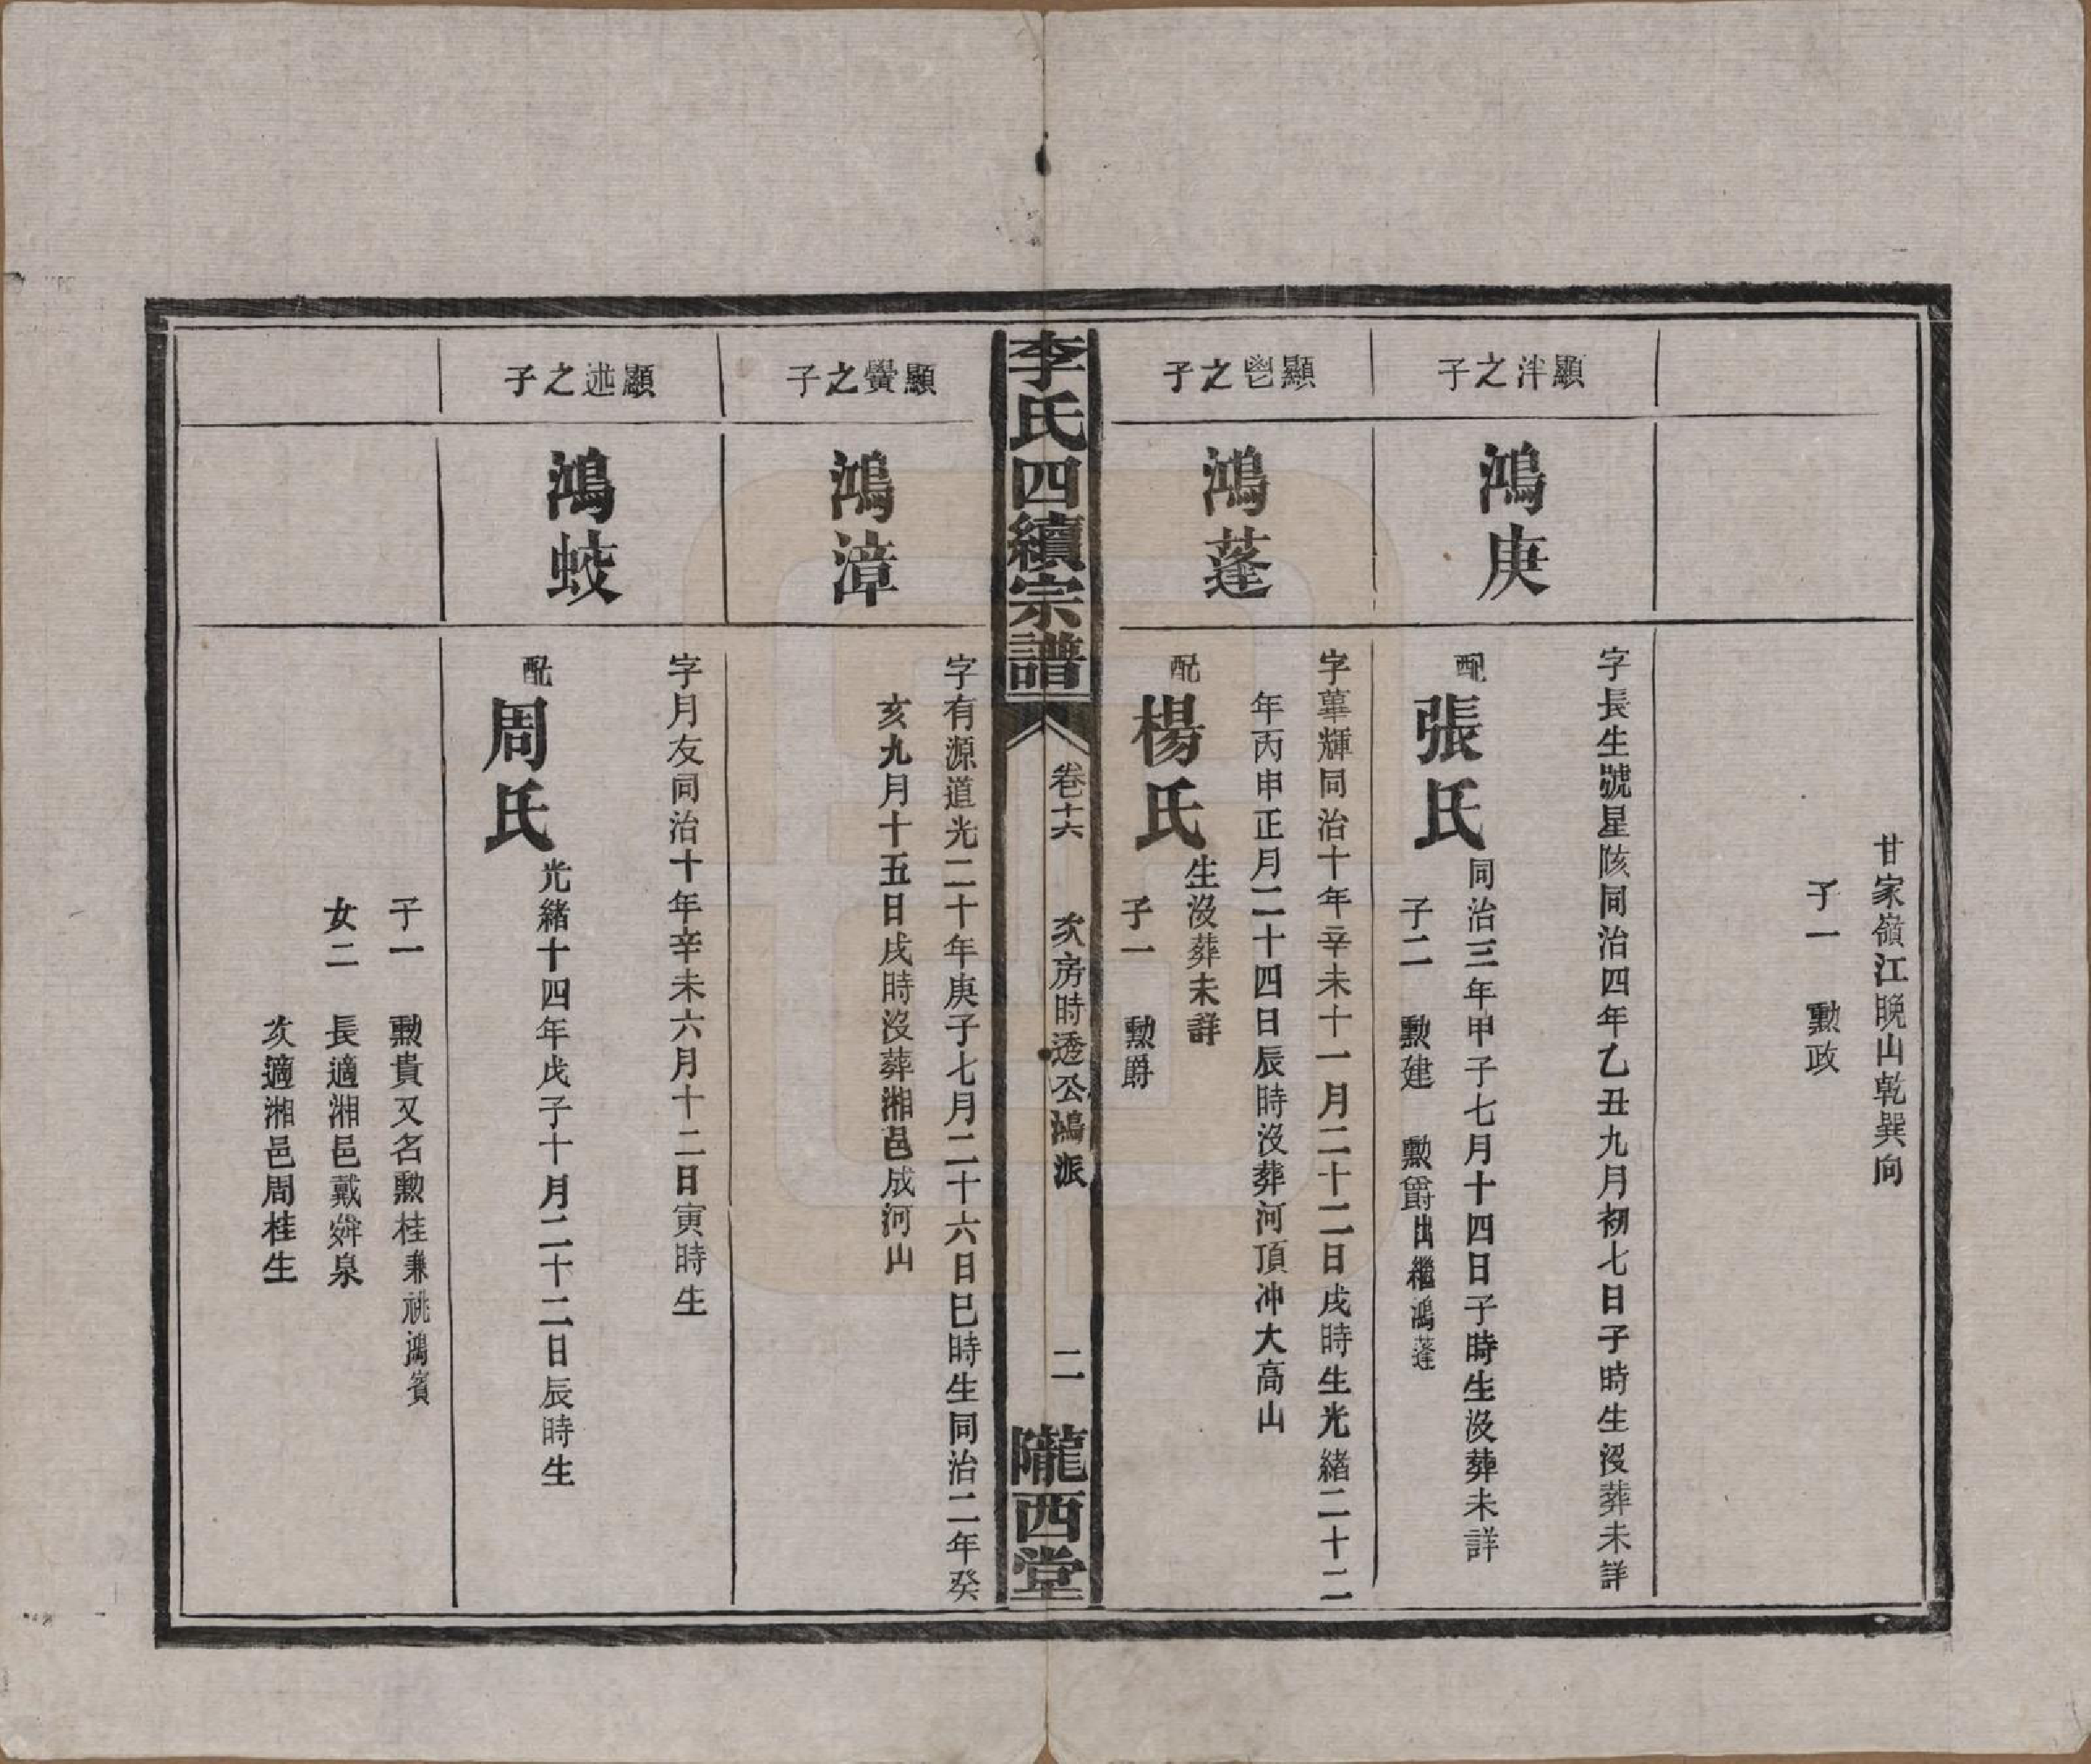 甘家嶺江晚山乾巽向
子一　勲政
顯泮之子
鴻庚
字長生號星陔同治四年乙丑九月初七日子時生沒葬未詳
配張氏同治三年甲子七月十四日子時生沒葬未詳
子二　勲建　勲爵出繼鴻蓬
顯鬯之子
鴻蓬
字葦輝同治十年辛未十一月二十二日戌時生光緒二十二
年丙申正月二十四日辰時沒葬河頂冲大高山
配楊氏生沒葬未詳
子一　勲爵
李氏四續宗譜
卷十六　次房時透公鴻派　二
隴西堂
顯黌之子
鴻漳
字有源道光二十年庚子七月二十六日巳時生同治二年癸
亥九月十五日戌時沒葬湘邑成河山
顯述之子
鴻蛟
字月友同治十年辛未六月十二日寅時生
配周氏光緒十四年戊子十月二十二日辰時生
子一　勲貴又名勲桂兼祧鴻賓
女二　長適湘邑戴舜泉
次適湘邑周桂生